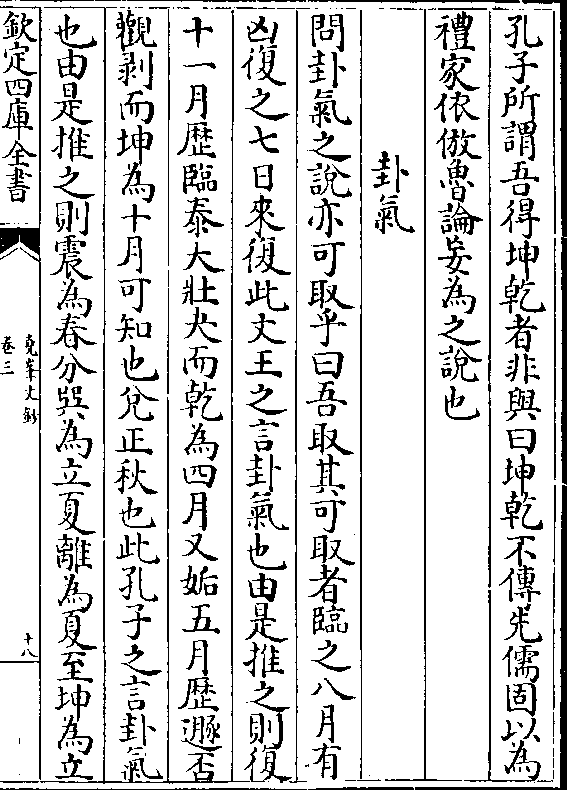 孔子所謂吾得坤乾者非與曰坤乾不傳先儒固以為
禮家依倣魯論妄為之說也
卦氣
問卦氣之說亦可取乎曰吾取其可取者臨之八月有
凶復之七日來復此文王之言卦氣也由是推之則復
十一月歷臨泰大壯夬而乾為四月又姤五月歷遯否
觀剥而坤為十月可知也兌正秋也此孔子之言卦氣
也由是推之則震為春分巽為立夏離為夏至坤為立
欽定四庫全書
堯峯文鈔
卷三
十八